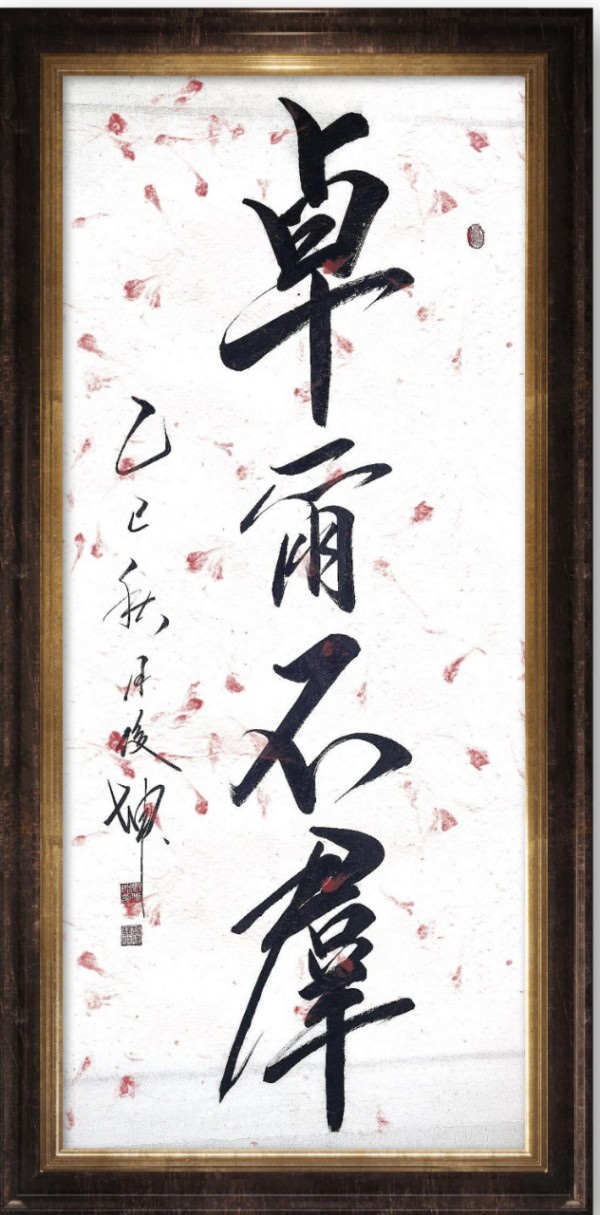 卓爾不群
乙巳秋月俊坤